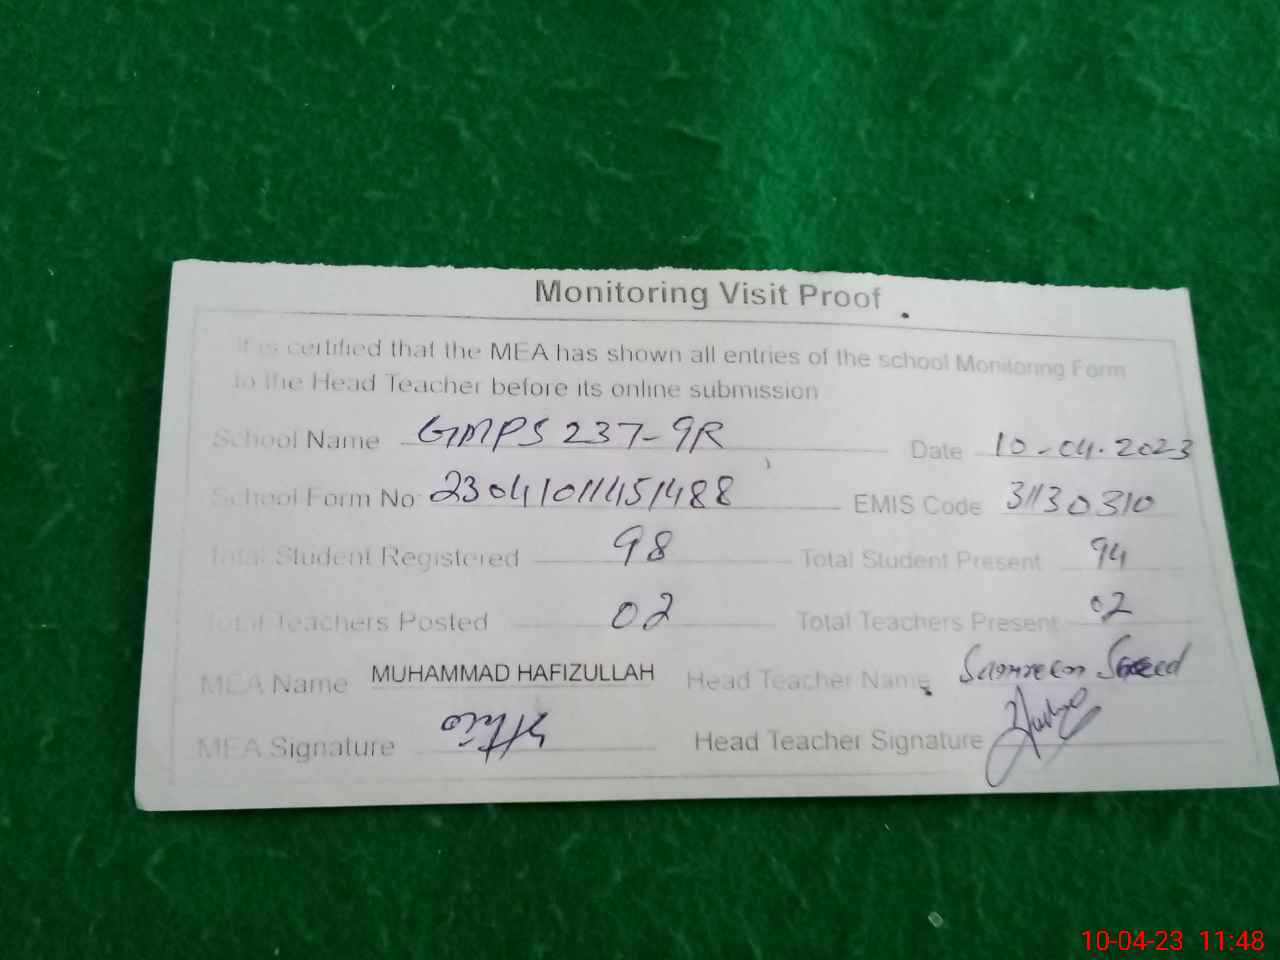 Monitoring Visit Proof
It is certified that the MEA has shown all entries of the school Monitoring Form
to the Head Teacher before its online submission
School Name GMPS 237-9R Date 10-04-2023
School Form No 23041011451488 EMIS Code 31130310
Total Student Registered 98 Total Student Present 94
Total Teachers Posted 02 Total Teachers Present 02
MEA Name MUHAMMAD HAFIZULLAH Head Teacher Name Saeed
MEA Signature Head Teacher Signature
10-04-23 11:48